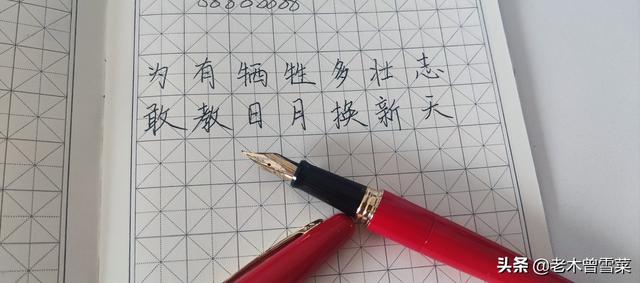 为有牺牲多壮志
敢教日月换新天
头条 @老木曾雪菜